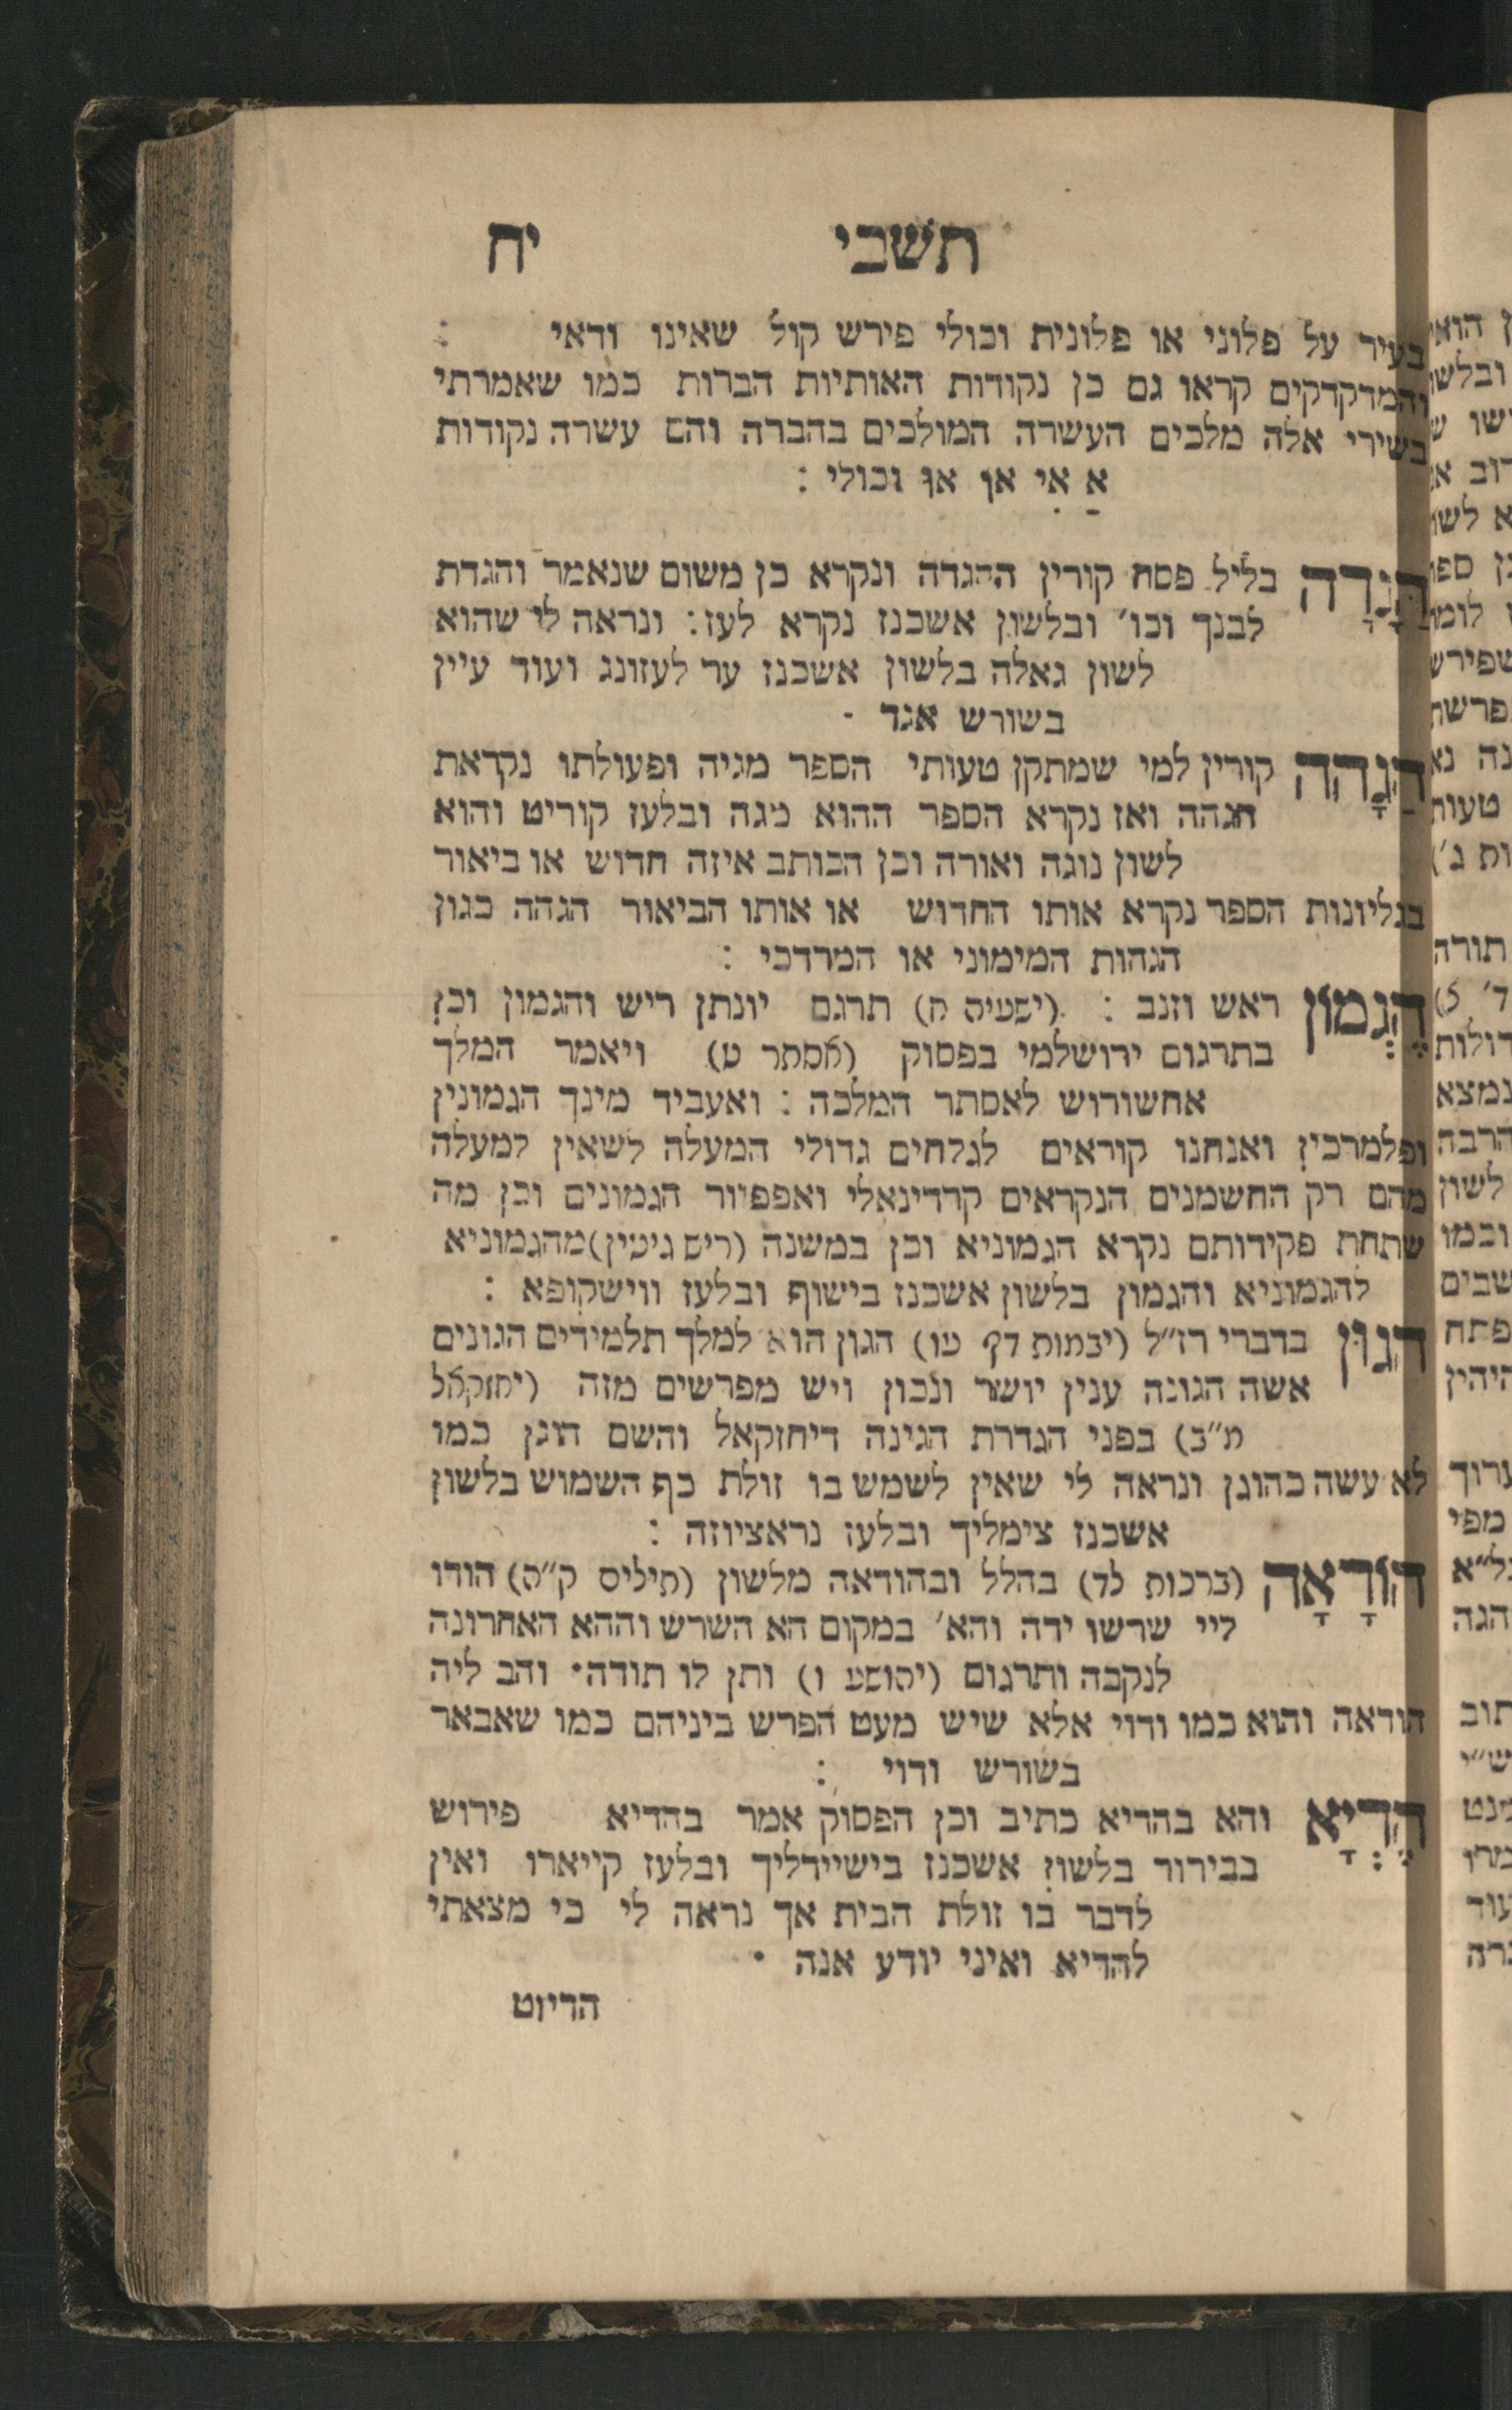 תשבי יח
בעיר על פלוני או פלונית וכולי פירש קול שאינו ודאי :
והמדקדקים קראו גם כן נקודות האותיות הברות כמו שאמרתי
בשירי אלה מלכים העשרה המולכים בהברה והם עשרה נקודות
אַ אִי אן אוּ וכולי :
הַגָדָה בליל פסח קורין ההגדה ונקרא כן משום שנאמר והגדת
לבנך וכו׳ ובלשון אשכנז נקרא לעז : ונראה לי שהוא
לשון גאלה בלשון אשכנז ער לעזונג ועוד עיין
בשורש אגד ·
הַגָהָה קורין למי שמתקן טעותי הספר מגיה ופעולתו נקראת
הגהה ואז נקרא הספר ההוא מגה ובלעז קוריט והוא
לשון נוגה ואורה וכן הכותב איזה חדוש או ביאור
בגליונות הספר נקרא אותו החדוש או אותו הביאור הגהה כגון
הגהות המימוני או המרדכי :
הֶגְמוֹן ראש וזנב : (ישעיה ח) תרגם יונתן ריש והגמון וכן
בתרגום ירושלמי בפסוק (אסתר ט) ויאמר המלך
אחשורוש לאסתר המלכה : ואעביד מינך הגמונין
ופלמרכין ואנחנו קוראים לגלחים גדולי המעלה לשאין למעלה
מהם רק החשמנים הנקראים קרדינאלי ואפפיור הגמונים וכן מה
שתחת פקידותם נקרא הגמוניא וכן במשנה (ריש גיטין) מהגמוניא
להגמוניא והגמון בלשון אשכנז בישוף ובלעז ווישקופא :
הגוּן בדברי רז״ל (יבמות דף טו) הגון הוא למלך תלמידים הגונים
אשה הגונה ענין יושר ונכון ויש מפרשים מזה (יחזקאל
מ״ב) בפני הגדרת הגינה דיחזקאל והשם הוגן כמו
לא עשה כהוגן ונראה לי שאין לשמש בו זולת כף השמוש בלשון
אשכנז צימליך ובלעז גראציוזה :
הוֹדָאָה (ברכות לד) בהלל ובהודאה מלשון (תילים ק״ה) הודו
ליי שרשו ידה והא׳ במקום הא השרש וההא האחרונה
לנקבה ותרגום (יהושע ו) ותן לו תודה· והב ליה
הודאה והוא כמו ודוי אלא שיש מעט הפרש ביניהם כמו שאבאר
בשורש ודוי :
הֶדְיָא והא בהדיא כתיב וכן הפסוק אמר בהדיא פירוש
בבירור בלשון אשכנז בישיידליך ובלעז קייארו ואין
לדבר בו זולת הבית אך נראה לי כי מצאתי
להדיא ואיני יודע אנה ·
הדיוט